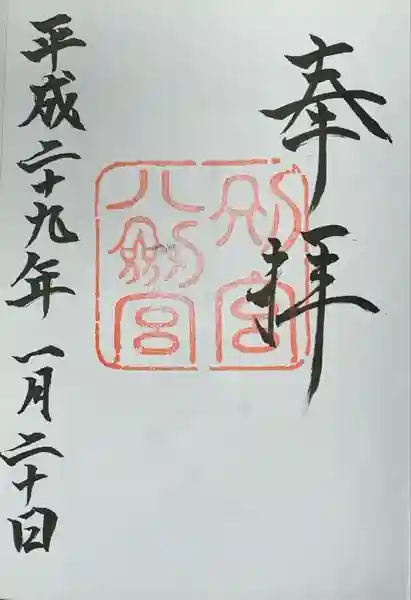 奉拝
別宮
八劔宮
平成二十九年一月二十日